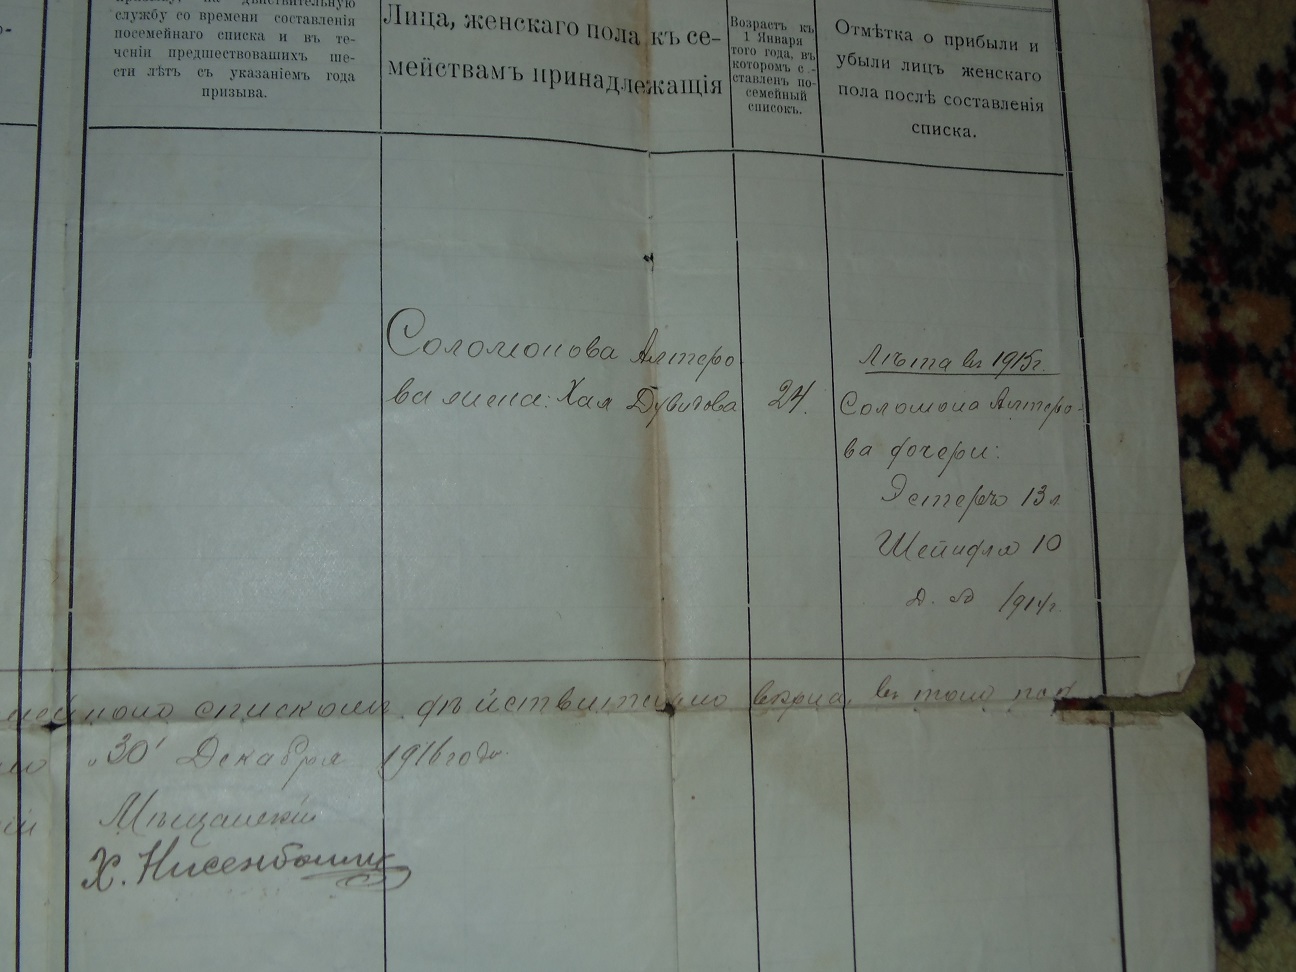 службу со времени составленія
посемейнаго списка и въ те-
ченіи предшествовашихъ ше-
сти лѣтъ съ указаніемъ года
призыва.
Лица, женскаго пола къ се-
мействамъ принадлежащія
Возрастъ къ
1 Января
того года, въ
которомъ с .-
ставленъ по-
семейный
списокъ.
Отмѣтка о прибыли и
убыли лицъ женскаго
пола послѣ составленія
списка.
Соломонова Алтеро
ва жена: Хая Дувидова
24.
Лѣта въ 1915г.
Соломона Алтеро-
ва дочери:
Эстеръ 13 л
Шейндля 10
1914г.
спискомъ дѣйствительно вѣрна, въ томъ
„30" Декабря 1916 года
Мѣщанскій
Х. Нисенбоимъ